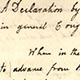 A Declaration by
in general Cong
When in the
to advance from